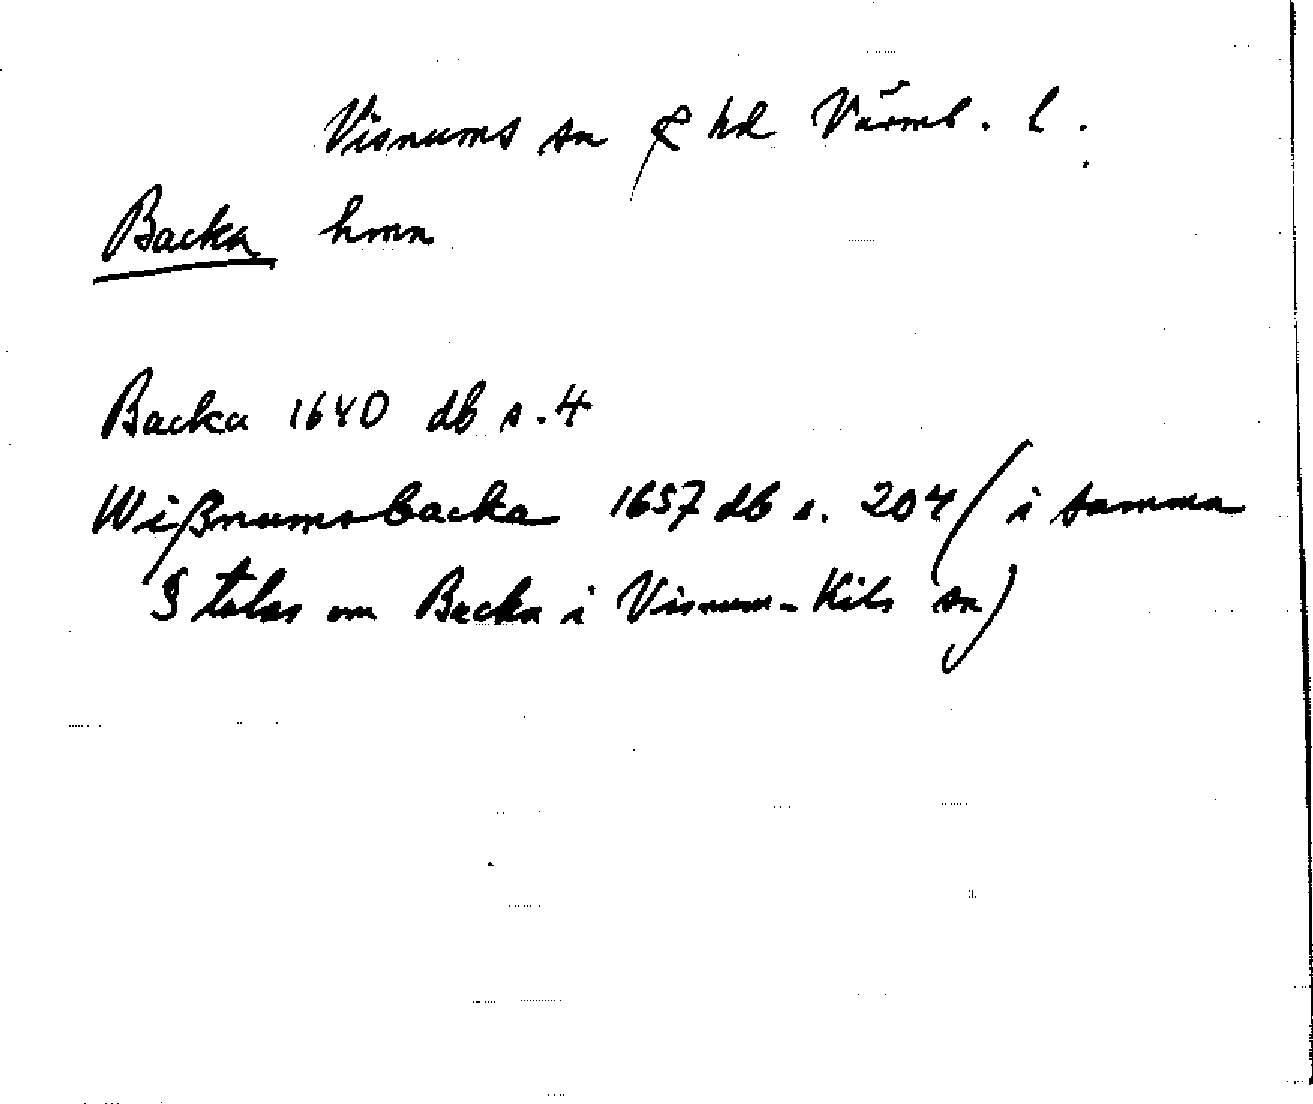 Visnums sn & hd Värml. l.
Backa hmn
Backa 1640 db s. 4
Wißnumsbacka 1657 db s. 204 (i samma
§ talas om Backa i Visnum-Kils sn)